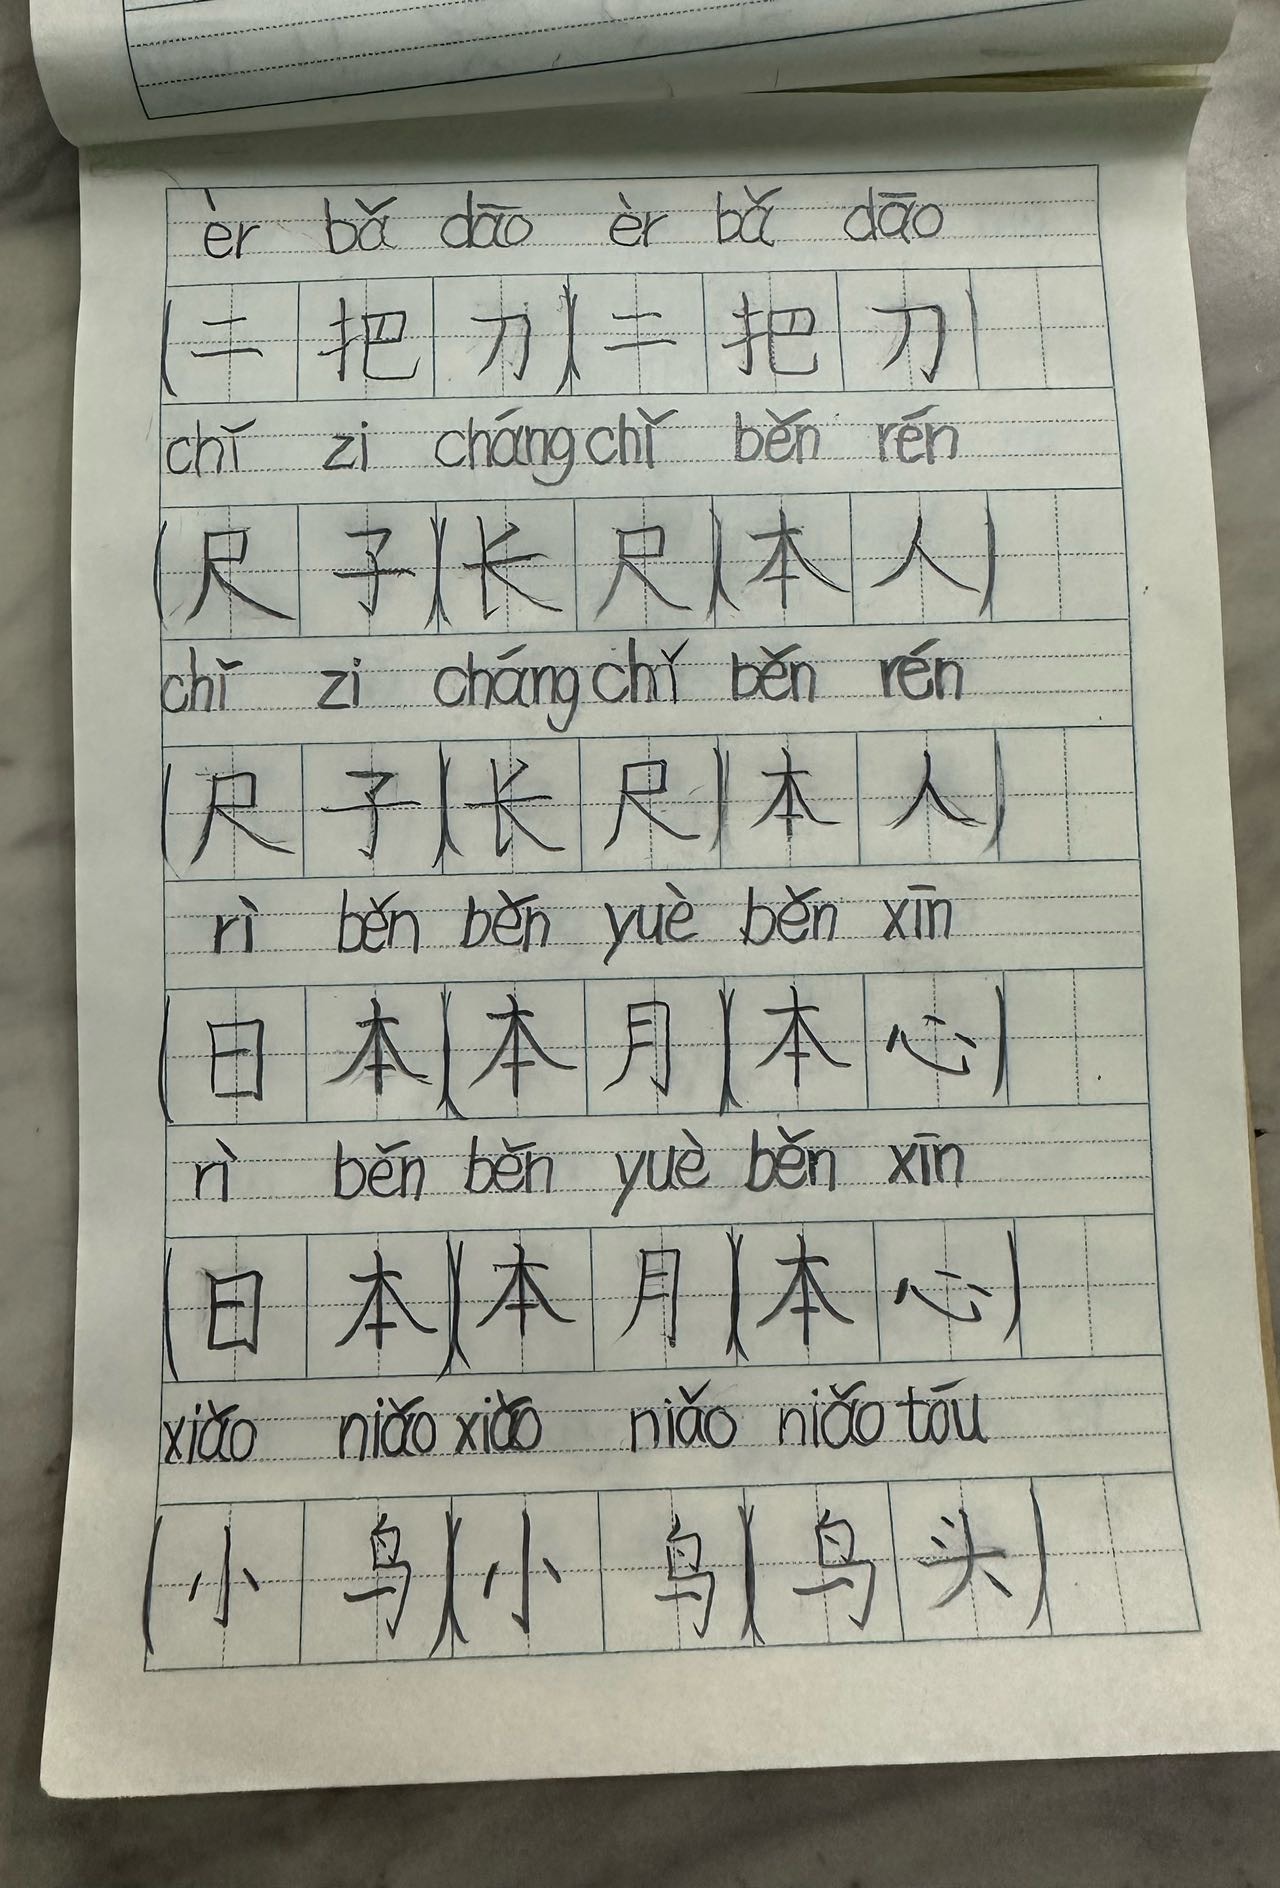 èr bǎ dāo èr bǎ dāo
(二把刀)(二把刀)
chǐ zi cháng chǐ běn rén
(尺子)(长尺)(本人)
chǐ zi cháng chǐ běn rén
(尺子)(长尺)(本人)
rì běn běn yuè běn xīn
(日本)(本月)(本心)
rì běn běn yuè běn xīn
(日本)(本月)(本心)
xiǎo niǎo xiǎo niǎo niǎo tōu
(小鸟)(小鸟)(鸟头)